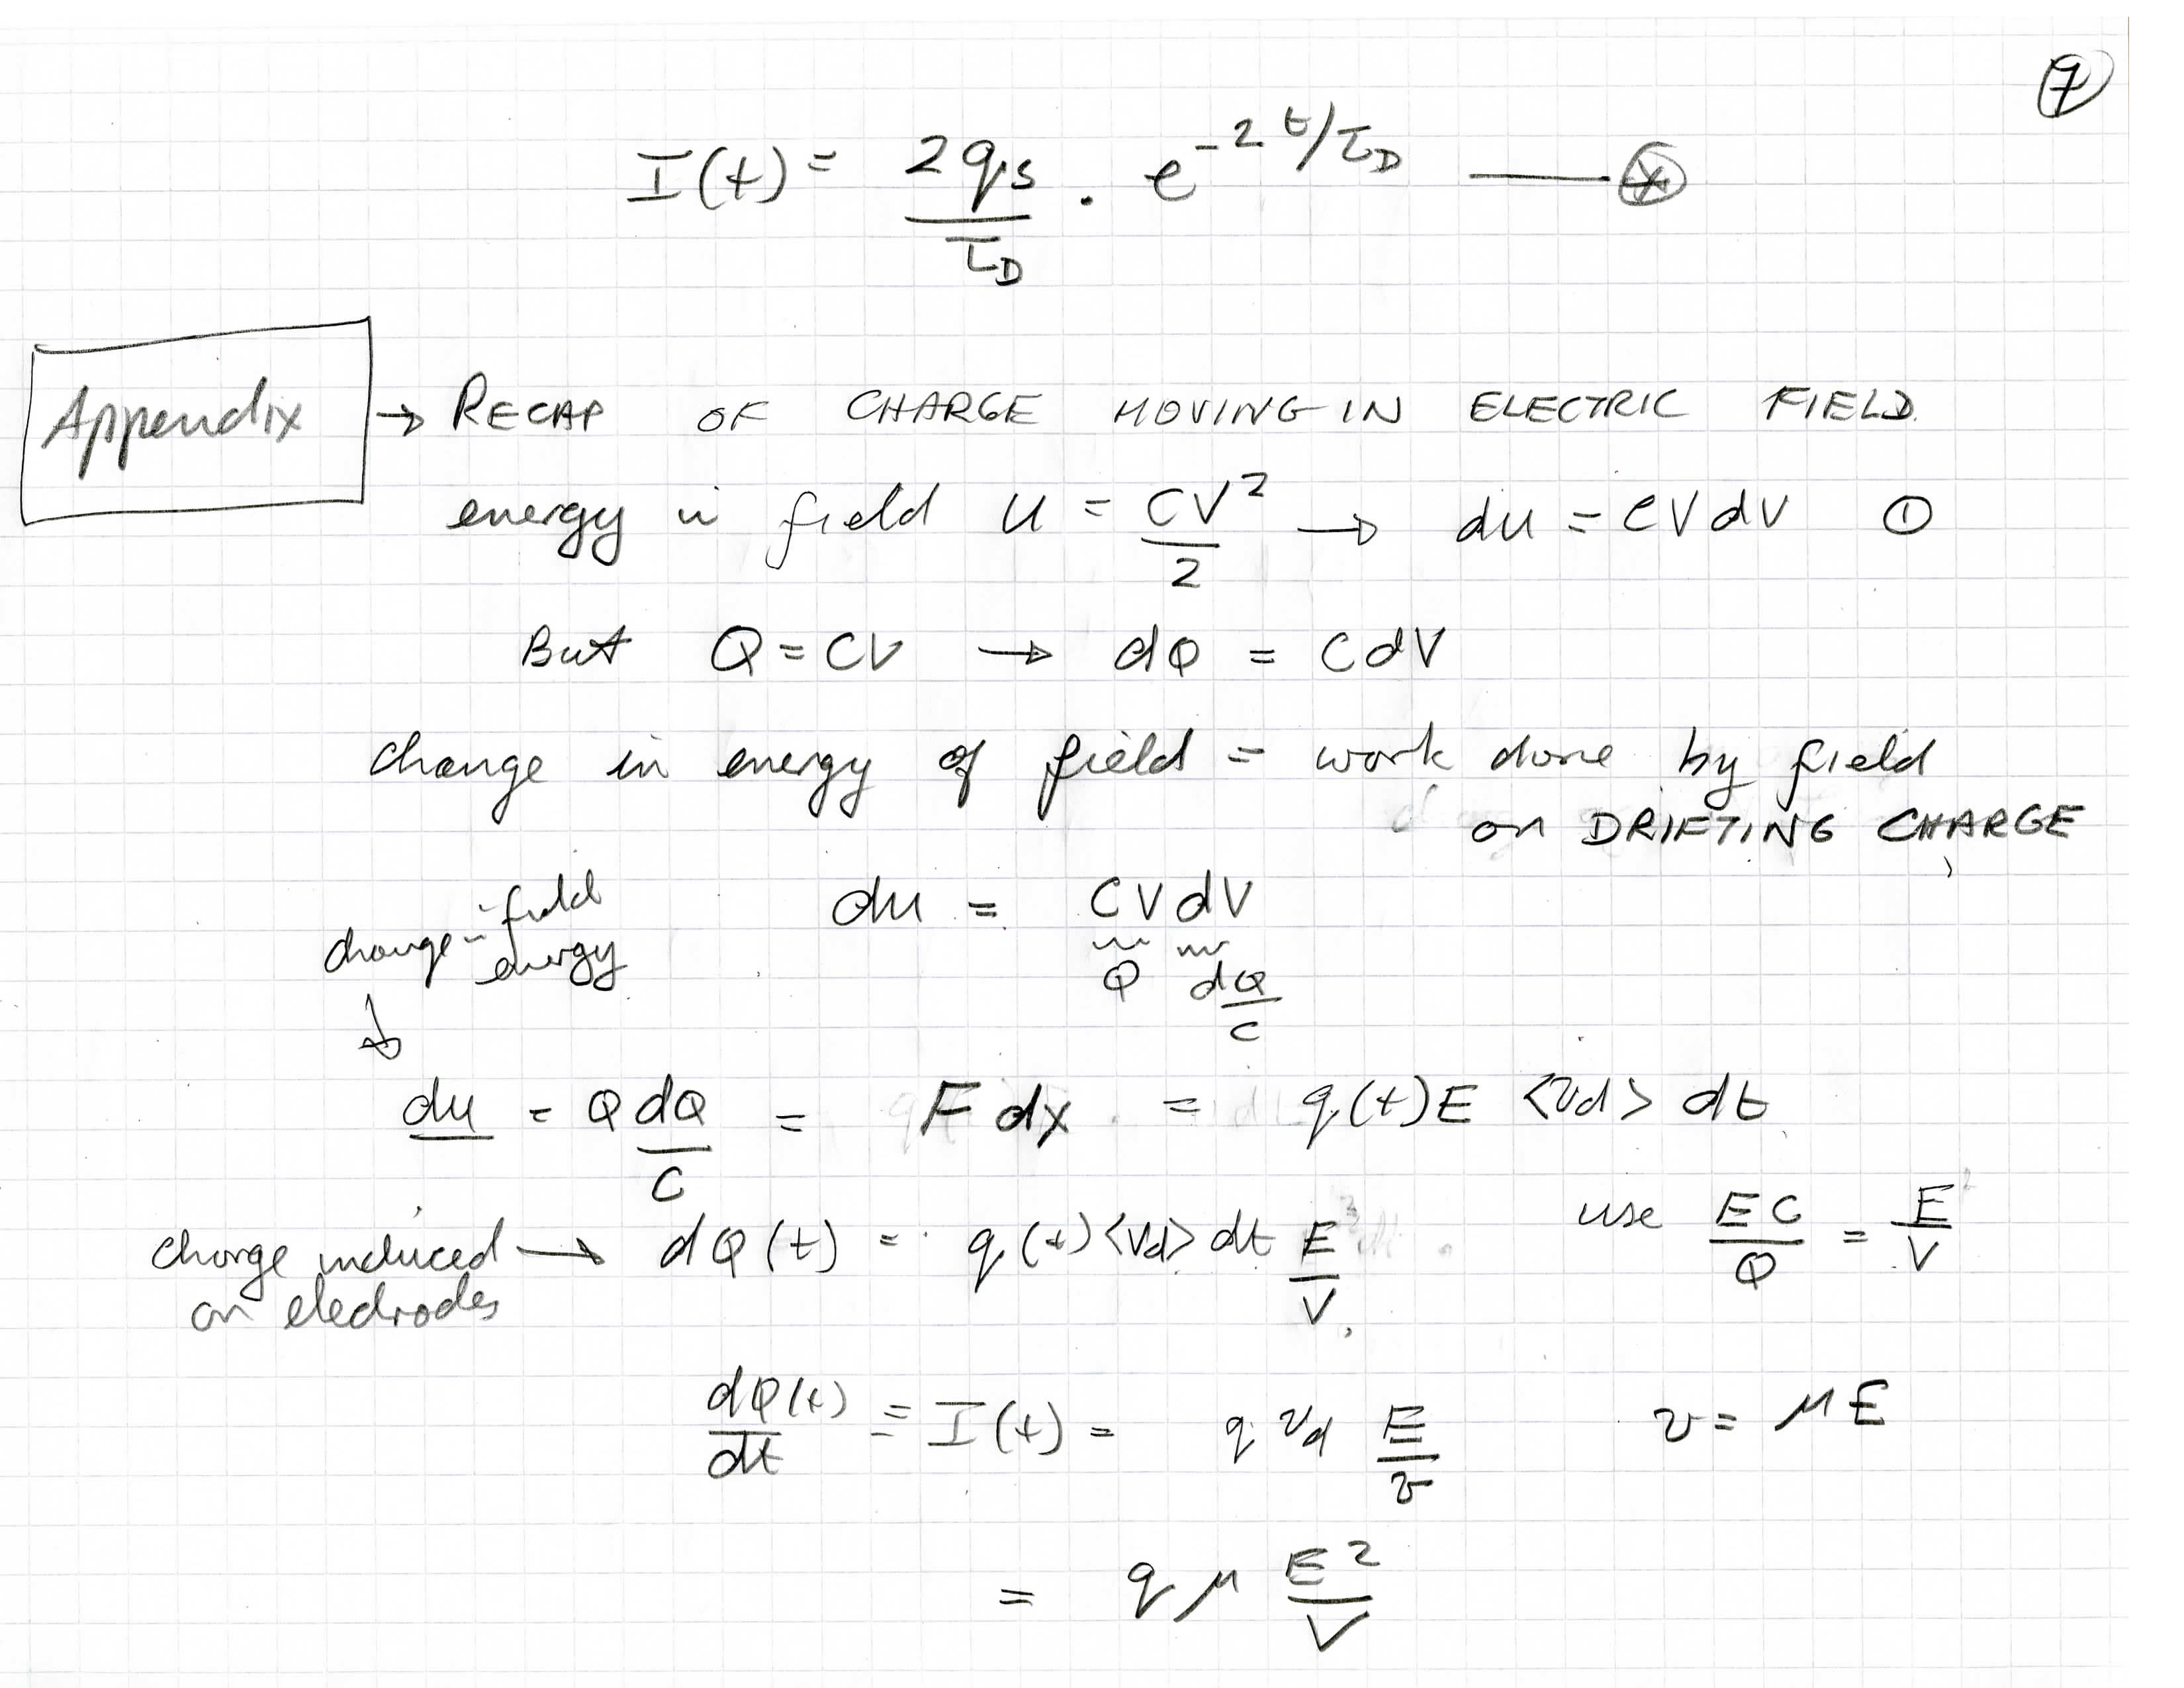 7
I(t) = 2qs/τD . e^-2t/τD —— ⊛
Appendix → RECAP OF CHARGE MOVING IN ELECTRIC FIELD.
energy in field U = CV²/2 → du = CVdV ①
But Q = CV → dQ = CdV
change in energy of field = work done by field
on DRIFTING CHARGE
change in field energy
du = CVdV
Q dQ/C
du = Q dQ/C = F dx = q(t)E <vd> dt
charge induced on electrodes → dQ(t) = q(t)<vd> dt E/V
use EC/Q = E/V
dQ(t)/dt = I(t) = q vd E/v
v = μE
= q μ E²/V